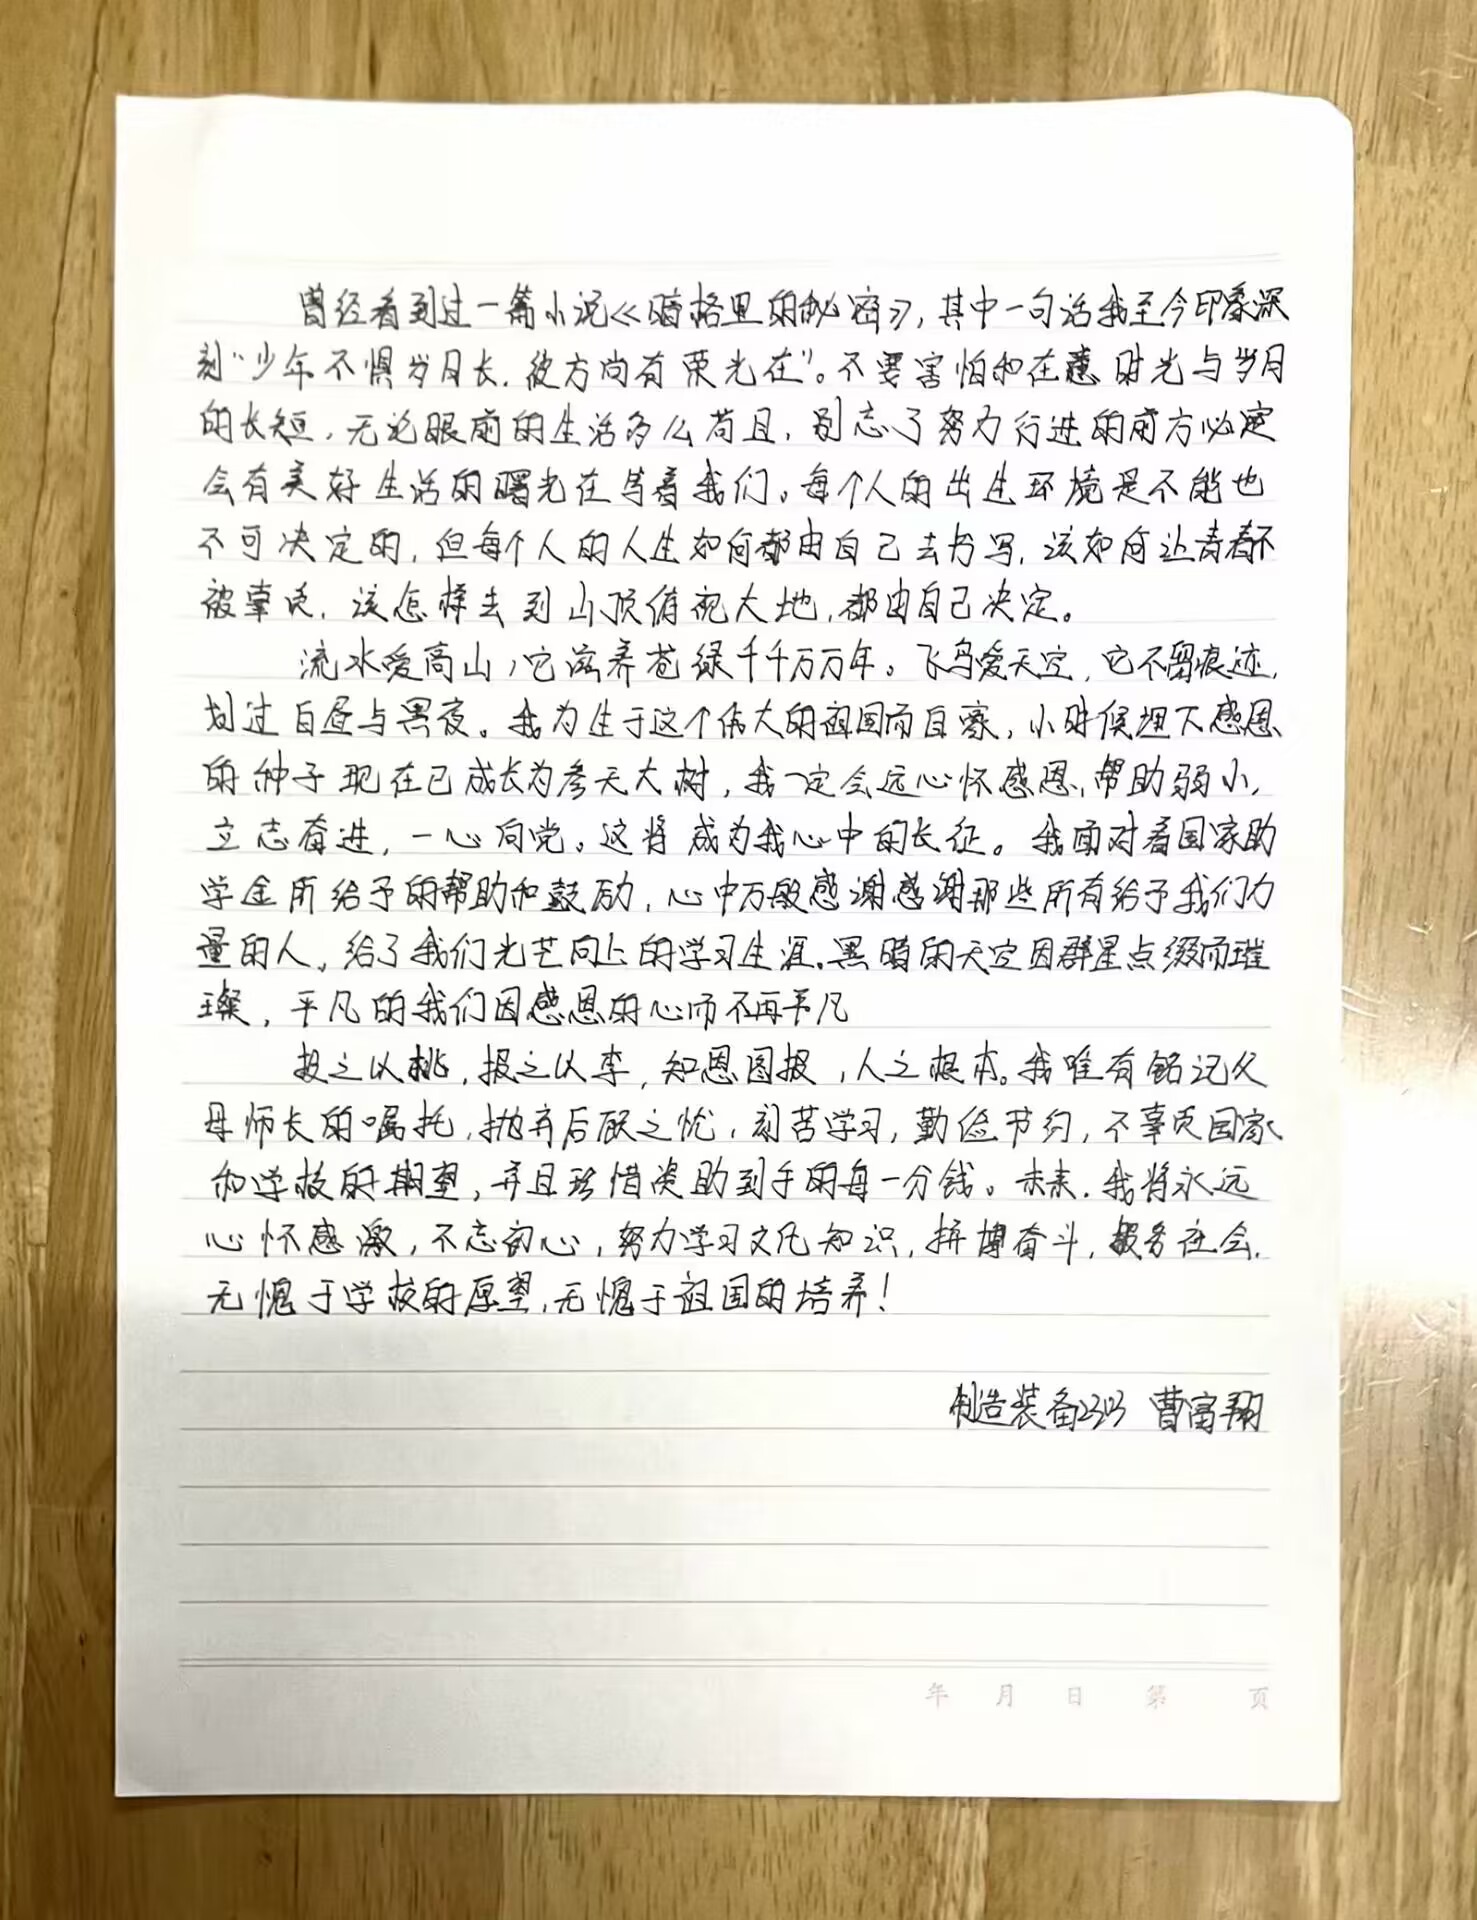 曾经看到过一篇小说《暗格里的秘密》,其中一句话我至今印象深
刻"少年不惧岁月长,彼方尚有荣光在"。不要害怕和在意时光与岁月
的长短,无论眼前的生活多么苟且,别忘了努力行进的前方必定
会有美好生活的曙光在等着我们。每个人的出生环境是不能也
不可决定的,但每个人的人生如何都由自己去书写,该如何让青春不
被辜负,该怎样去到山顶俯视大地,都由自己决定。
流水爱高山,它滋养苍绿千千万万年。飞鸟爱天空,它不留痕迹,
划过白昼与黑夜。我为生于这个伟大的祖国而自豪,小时候埋下感恩
的种子现在已成长为参天大树,我一定会远心怀感恩,帮助弱小,
立志奋进,一心向党。这将成为我心中的长征。我面对着国家助
学金所给予的帮助和鼓励,心中万般感谢感谢那些所有给予我们力
量的人,给了我们光芒向上的学习生涯.黑暗的天空因群星点缀而璀
璨,平凡的我们因感恩的心而不再平凡
投之以桃,报之以李,知恩图报,人之根本。我唯有铭记父
母师长的嘱托,抛弃后顾之忧,刻苦学习,勤俭节约,不辜负国家
和学校的期望,并且珍惜资助到手的每一分钱。未来,我将永远
心怀感激,不忘初心,努力学习文化知识,拼搏奋斗,服务社会,
无愧于学校的厚望,无愧于祖国的培养!
制造装备2313 曹富翔
年 月 日 第 页